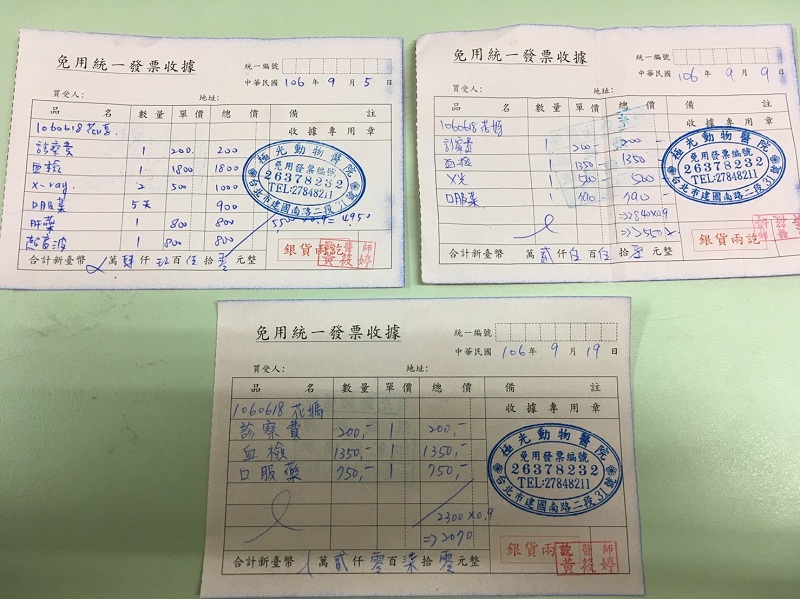 免用統一發票收據
統一編號
中華民國 106 年 9 月 5 日
買受人： 地址：
品名 數量 單價 總價 備註
1060618 花媽
收據專用章
診察費 1 200. 200
血檢 1 1800 1800
X-ray. 2 500 1000
口服藥 5天 900
肝藥 1 800 800
超音波 1 800 800
極光動物醫院
免用發票編號
26378232
TEL:27848211
台北市建國南路二段31號
5500 x0.9=4950
銀貨兩訖
醫師
黃筱婷
合計新臺幣 萬 肆 仟 玖 百 伍 拾 零 元整
免用統一發票收據
統一編號
中華民國 106 年 9 月 9 日
買受人： 地址：
品名 數量 單價 總價 備註
1060618 花媽
收據專用章
診察費 1 200- 200-
血檢 1 1350- 1350-
X光 1 500 500
口服藥 1 790 790
極光動物醫院
免用發票編號
26378232
TEL:27848211
台北市建國南路二段31號
=>2840x0.9
銀貨兩訖
合計新臺幣 萬 貳 仟 伍 百 拾 零 元整
免用統一發票收據
統一編號
中華民國 106 年 9 月 19 日
買受人： 地址：
品名 數量 單價 總價 備註
1060618 花媽
收據專用章
診察費 200,- 1 200,-
血檢 1350,- 1 1350,-
口服藥 750,- 1 750,-
極光動物醫院
免用發票編號
26378232
TEL:27848211
台北市建國南路二段31號
2300x0.9
=>2070
銀貨兩訖
醫師
黃筱婷
合計新臺幣 萬 貳 仟 零 百 柒 拾 零 元整